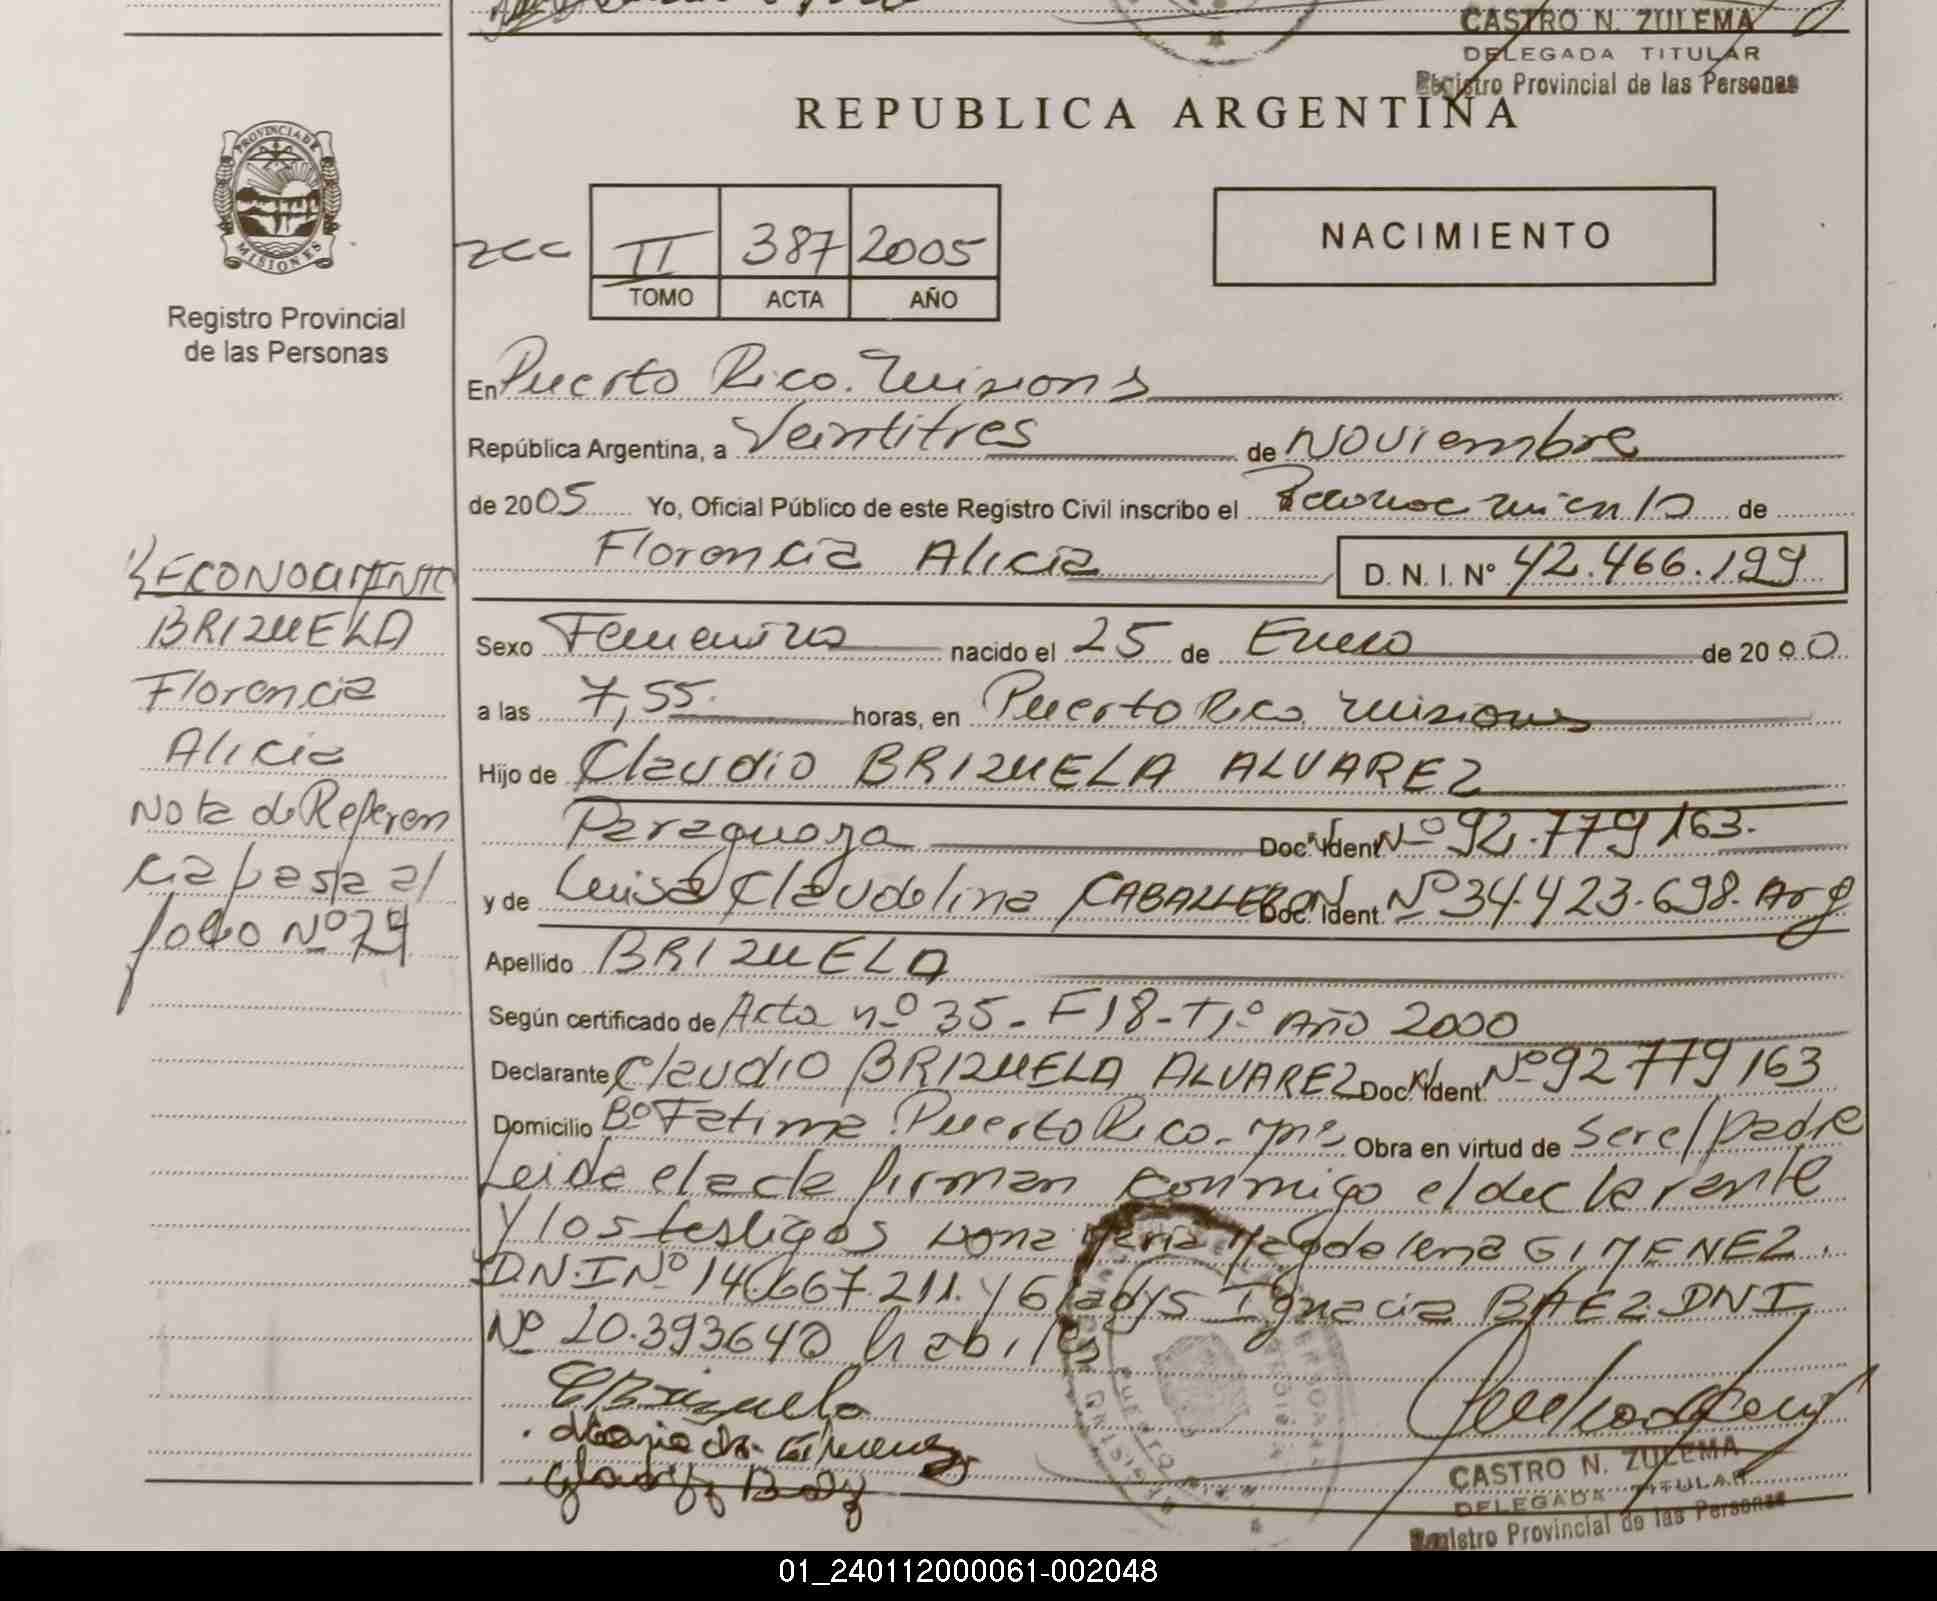 CASTRO N. ZULEMA
DELEGADA TITULAR
Registro Provincial de las Personas
REPUBLICA ARGENTINA
PROVINCIA DE
MISIONES
Registro Provincial
de las Personas
II 387 2005
TOMO ACTA AÑO
NACIMIENTO
En Puerto Rico. Misiones
República Argentina, a Veintitres de Noviembre
de 2005 Yo, Oficial Público de este Registro Civil inscribo el Reconocimiento de
Florencia Alicia D. N. I. N° 42.466.199
Sexo Femenino nacido el 25 de Enero de 2000
a las 7,55. horas, en Puerto Rico Misiones
Hijo de Claudio BRIZUELA ALVAREZ
Paraguaya Doc. Ident. Nº 92.779163.
y de Luisa Claudelina CABALLERO Doc. Ident. Nº 34.423.698. Arg
Apellido BRIZUELA
Según certificado de Acta nº 35 - F18 - T1º Año 2000
Declarante Claudio BRIZUELA ALVAREZ Doc. Ident. Nº 92779163
Domicilio Bº Fatima. Puerto Rico. Mnes Obra en virtud de ser el padre
Leida el acta firman conmigo el declarante
y los testigos Dona Maria Magdalena GIMENEZ.
D.N.I Nº 14.667.211. y Gladys Ignacia BAEZ. DNI
Nº 20.393640 habiles
CBrizuela
Gladys Baez
CASTRO N. ZULEMA
DELEGADA TITULAR
Registro Provincial de las Personas
RECONOCIMINTO
BRIZUELA
Florencia
Alicia
Nota de Referen
cia pasa al
folio Nº 79
01_240112000061-002048